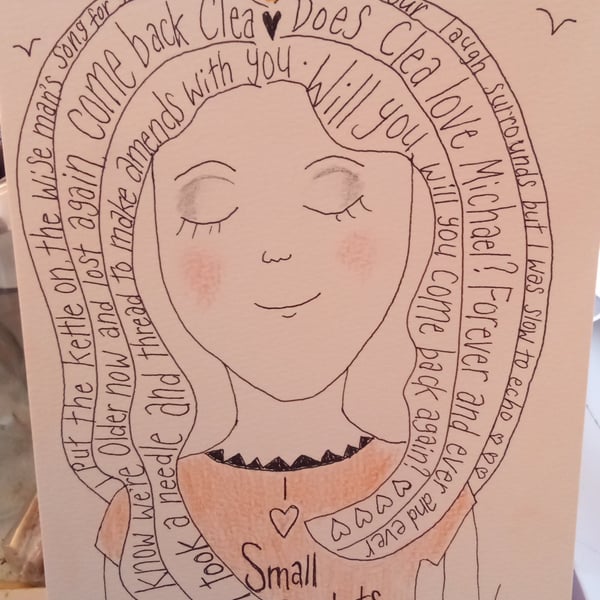 Put the kettle on, the wise man's song for
laugh surrounds but I was slow to echo ♡♡♡
Know we're Older now and lost again come back Clea ♥ Does Clea love Michael? Forever and ever and ever
I took a needle and thread to make amends with you. Will you, will you come back again? ♡♡♡♡
Small